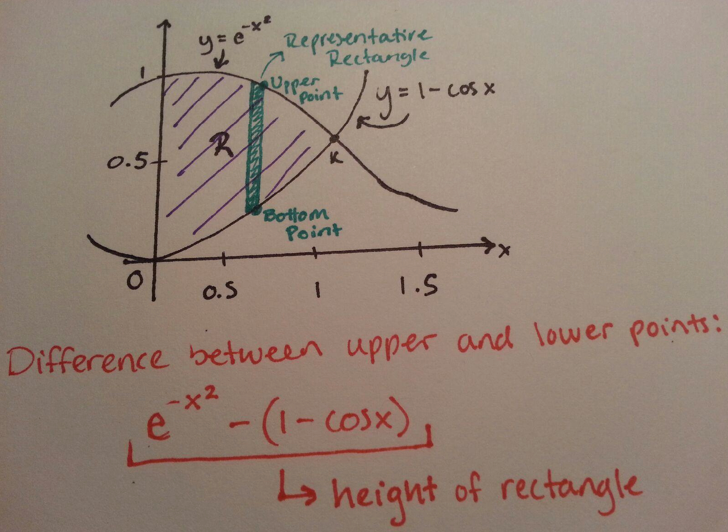 y = e^-x²
Representative
Rectangle
1
Upper
Point
y = 1 - cos x
R
0.5
K
Bottom
Point
x
0
0.5
1
1.5
Difference between upper and lower points:
e^-x² - (1 - cosx)
↳ height of rectangle